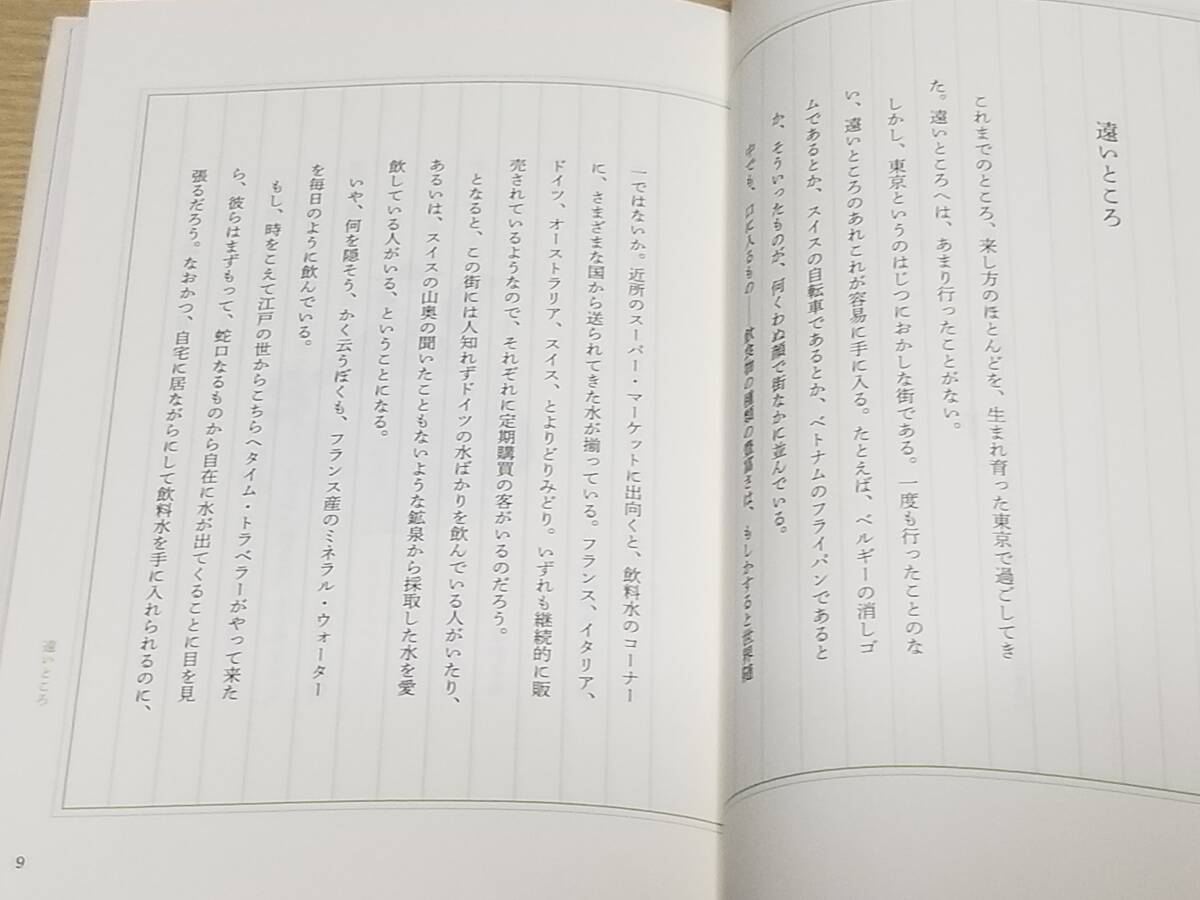 遠いところ
これまでのところ、来し方のほとんどを、生まれ育った東京で過ごしてき
た。遠いところへは、あまり行ったことがない。
しかし、東京というのはじつにおかしな街である。一度も行ったことのな
い、遠いところのあれこれが容易に手に入る。たとえば、ベルギーの消しゴ
ムであるとか、スイスの自転車であるとか、ベトナムのフライパンであると
か、そういったものが、何くわぬ顔で街なかに並んでいる。
中でも、口に入るもの――飲食物の種類の豊富さは、もしかすると世界随
一ではないか。近所のスーパー・マーケットに出向くと、飲料水のコーナー
に、さまざまな国から送られてきた水が揃っている。フランス、イタリア、
ドイツ、オーストラリア、スイス、とよりどりみどり。いずれも継続的に販
売されているようなので、それぞれに定期購買の客がいるのだろう。
となると、この街には人知れずドイツの水ばかりを飲んでいる人がいたり、
あるいは、スイスの山奥の聞いたこともないような鉱泉から採取した水を愛
飲している人がいる、ということになる。
いや、何を隠そう、かく云うぼくも、フランス産のミネラル・ウォーター
を毎日のように飲んでいる。
もし、時をこえて江戸の世からこちらへタイム・トラベラーがやって来た
ら、彼らはまずもって、蛇口なるものから自在に水が出てくることに目を見
張るだろう。なおかつ、自宅に居ながらにして飲料水を手に入れられるのに、
遠いところ
9